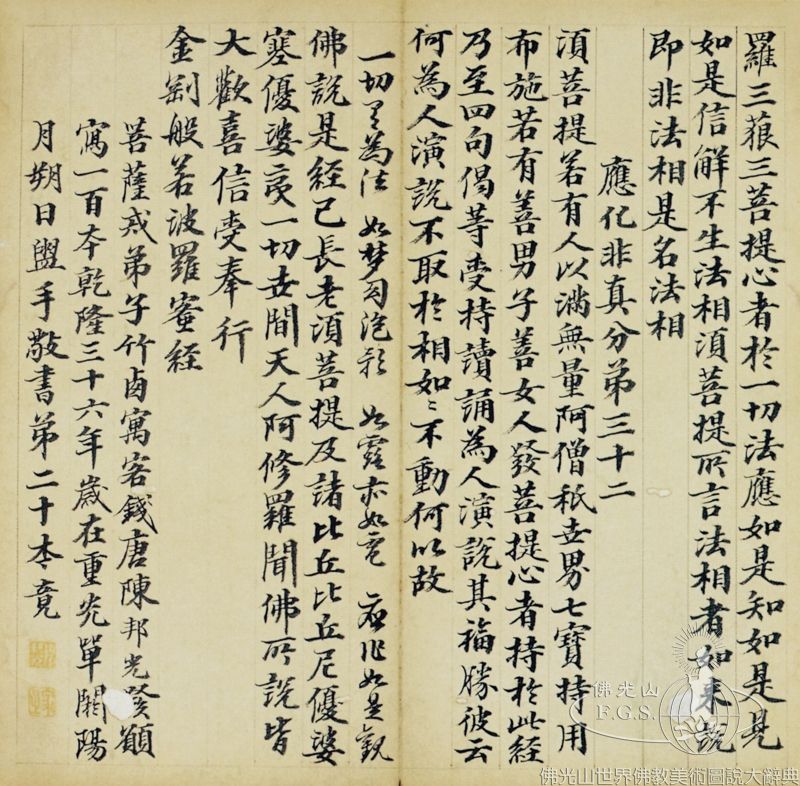 羅三藐三菩提心者於一切法應如是知如是見
如是信解不生法相須菩提所言法相者如来說
即非法相是名法相
應化非真分第三十二
須菩提若有人以滿無量阿僧祇世界七寶持用
布施若有善男子善女人發菩提心者持於此經
乃至四句偈等受持讀誦為人演說其福勝彼云
何為人演說不取於相如〻不動何以故
一切有為法 如梦幻泡影 如露亦如電 應作如是觀
佛說是經已長老須菩提及諸比丘比丘尼優婆
塞優婆夷一切世間天人阿修羅聞佛所說皆
大歡喜信受奉行
金剛般若波羅蜜經
菩薩戒弟子竹卤寓客錢唐陳邦光發願
寫一百本乾隆三十六年歲在重光單閼陽
月朔日盥手敬書第二十本竟
佛光山
F.G.S.
佛光山世界佛教美術圖說大辭典